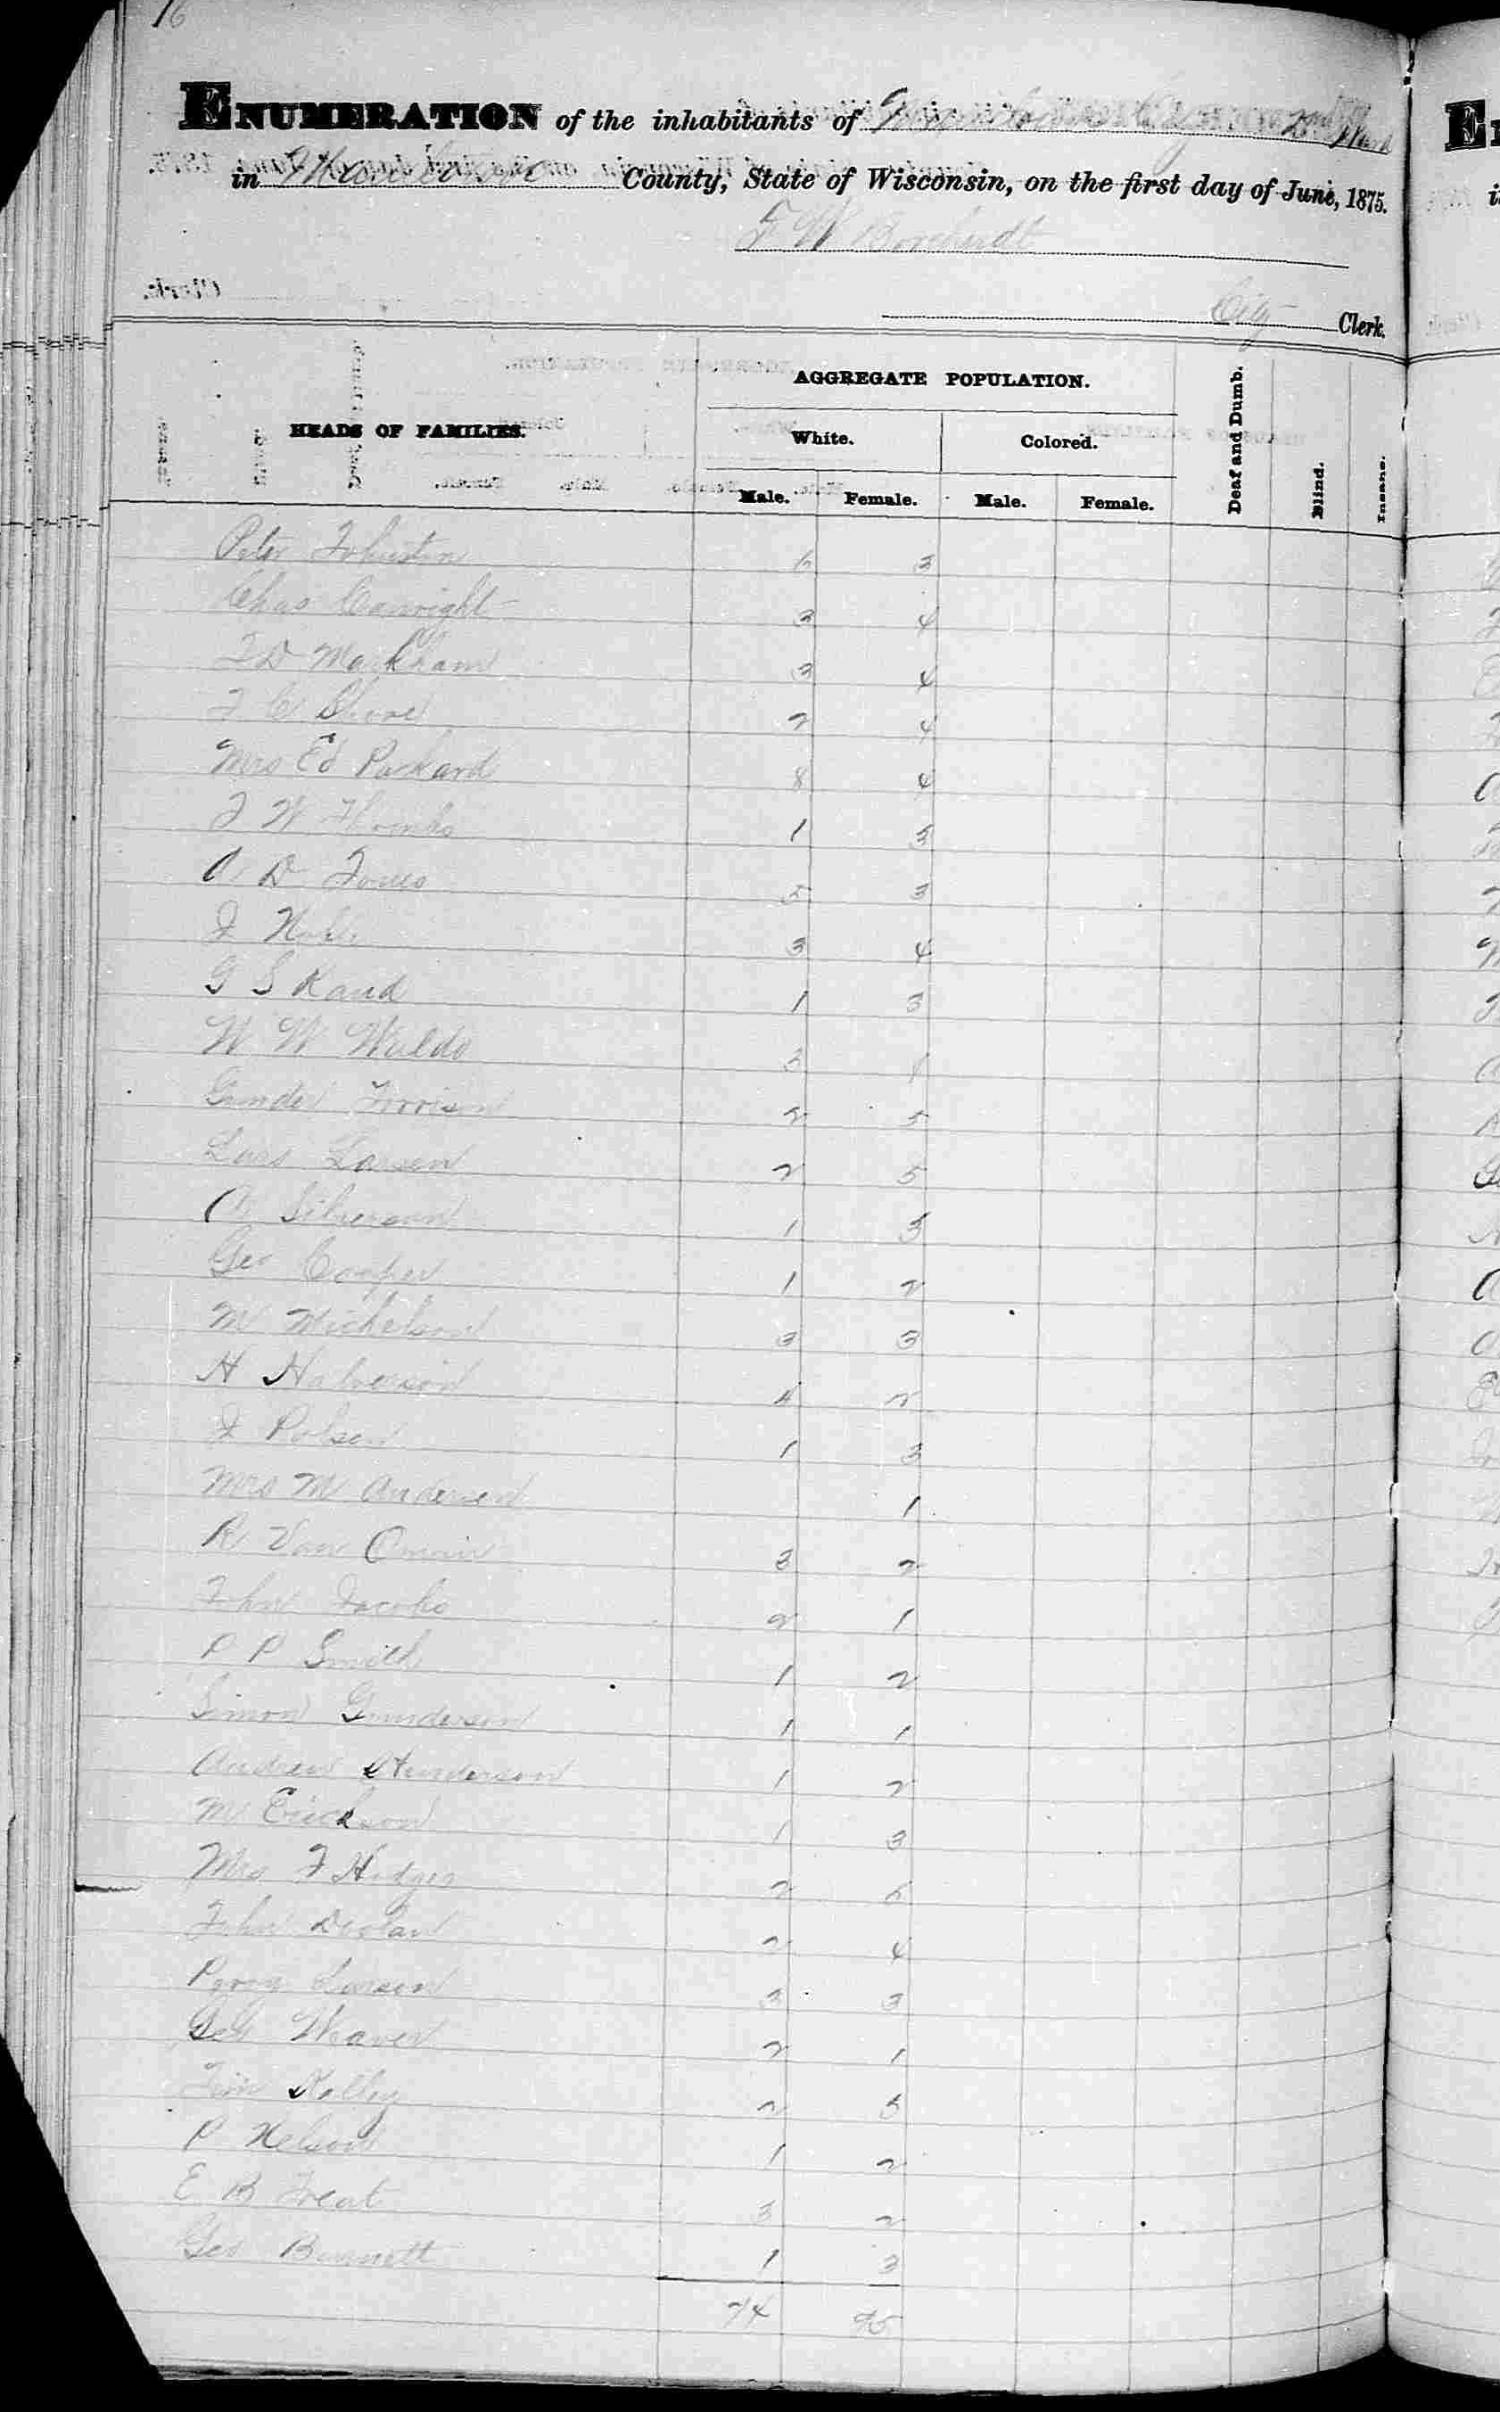 16
ENUMERATION of the inhabitants of Manitowoc City 2nd Ward
in Manitowoc County, State of Wisconsin, on the first day of June, 1875.
F W Borcherdt
City Clerk.
HEADS OF FAMILIES.
AGGREGATE POPULATION.
White. Colored.
Male. Female. Male. Female. Deaf and Dumb. Blind. Insane.
Peter Johnston 6 3
Chas Canright 3 4
J D Markham 3 4
J C Shove 2 4
Mrs Ed Packard 8 4
J W Thombs 1 3
O D Jones 5 3
J 3 4
G S Rand 1 3
W W Waldo 3 1
Gunder Torrison 2 5
Lars Larsen 2 5
O Silverson 1 3
Geo Cooper 1 2
M Michelson 3 3
H Halverson 4 2
J Polsen 1 3
Mrs M Andersen 1
R Van 3 2
John Jacobs 2 1
P P Smith 1 2
Simon Gunderson 1 1
Andrew Hunderson 1 2
M Erickson 1 3
Mrs J Hodges 2 6
John Doolan 2 4
Larsen 3 3
Geo Weaver 2 1
Tim Kelley 2 3
P Nelson 1 2
E B Treat 3 2
Geo Burnett 1 3
74 95